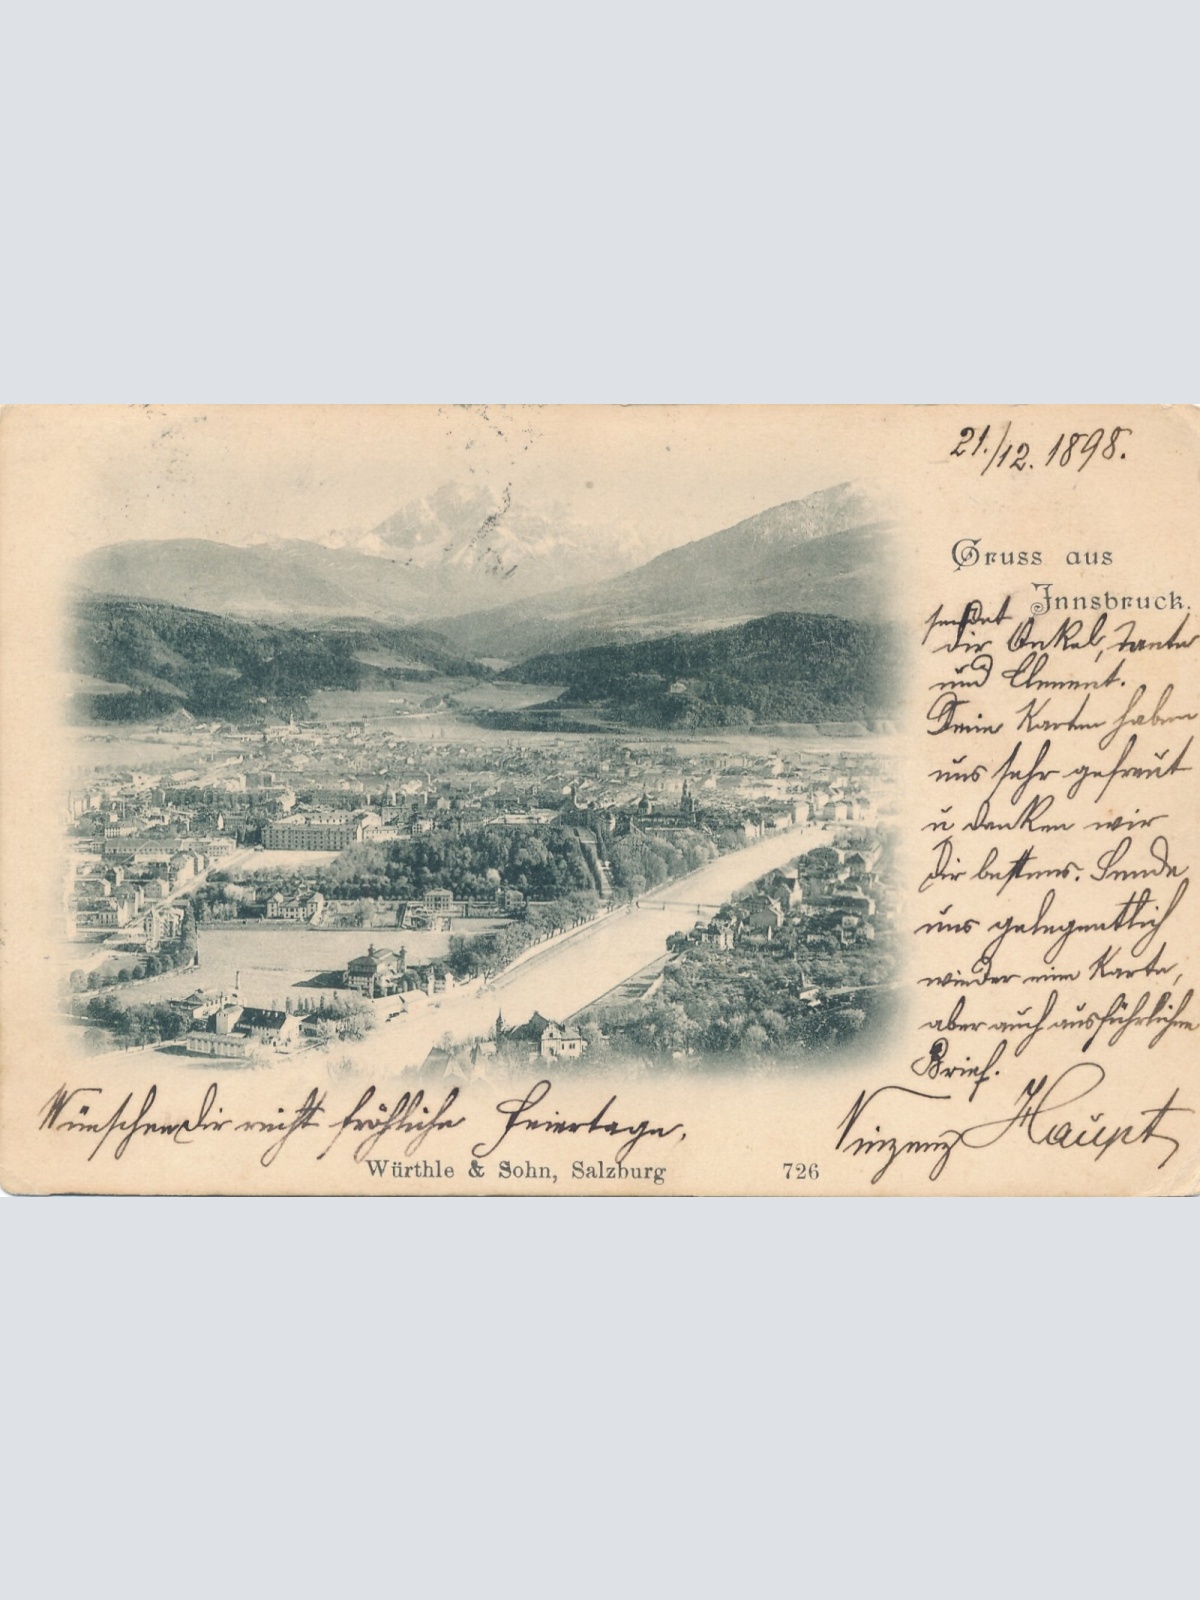 21./12. 1898.
Gruss aus
Innsbruck.
sendet
dir Onkel, Tante
und Clement.
Deine Karten haben
uns sehr gefreut
u danken wir
Dir bestens. Sende
uns gelegentlich
wieder eine Karte,
aber auch ausführlichen
Brief.
Wünschen Dir recht fröhliche Feiertage.
Vinzenz Haupt
Würthle & Sohn, Salzburg
726